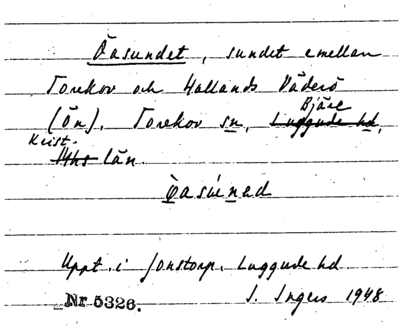 Öasundet, sundet emellan
Torekov och Hallands Väderö
(ön), Torekov sn, Luggude hd, Bjäre
Krist. Mhs län.
Uppt. i Jonstorp, Luggude hd
Nr 5326. I. Ingers 1948